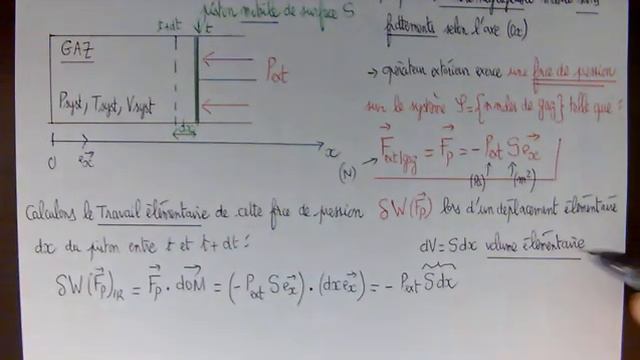 piston mobile de surface S
t+dt
t
GAZ
Psyst, Tsyst, Vsyst
Pext
dx
0
ex
x
frottements selon l'axe (Ox)
→ opérateur extérieur exerce une force de pression
sur le système
de gaz} telle que :
Fext/gaz = Fp = - Pext S ex
(N)
(Pa)
(m²)
Calculons le Travail élémentaire de cette force de pression δW(Fp) lors d'un déplacement élémentaire
dx du piston entre t et t+dt :
dV = Sdx volume élémentaire
δW(Fp)IR = Fp . dOM = (- Pext S ex) . (dx ex) = - Pext Sdx